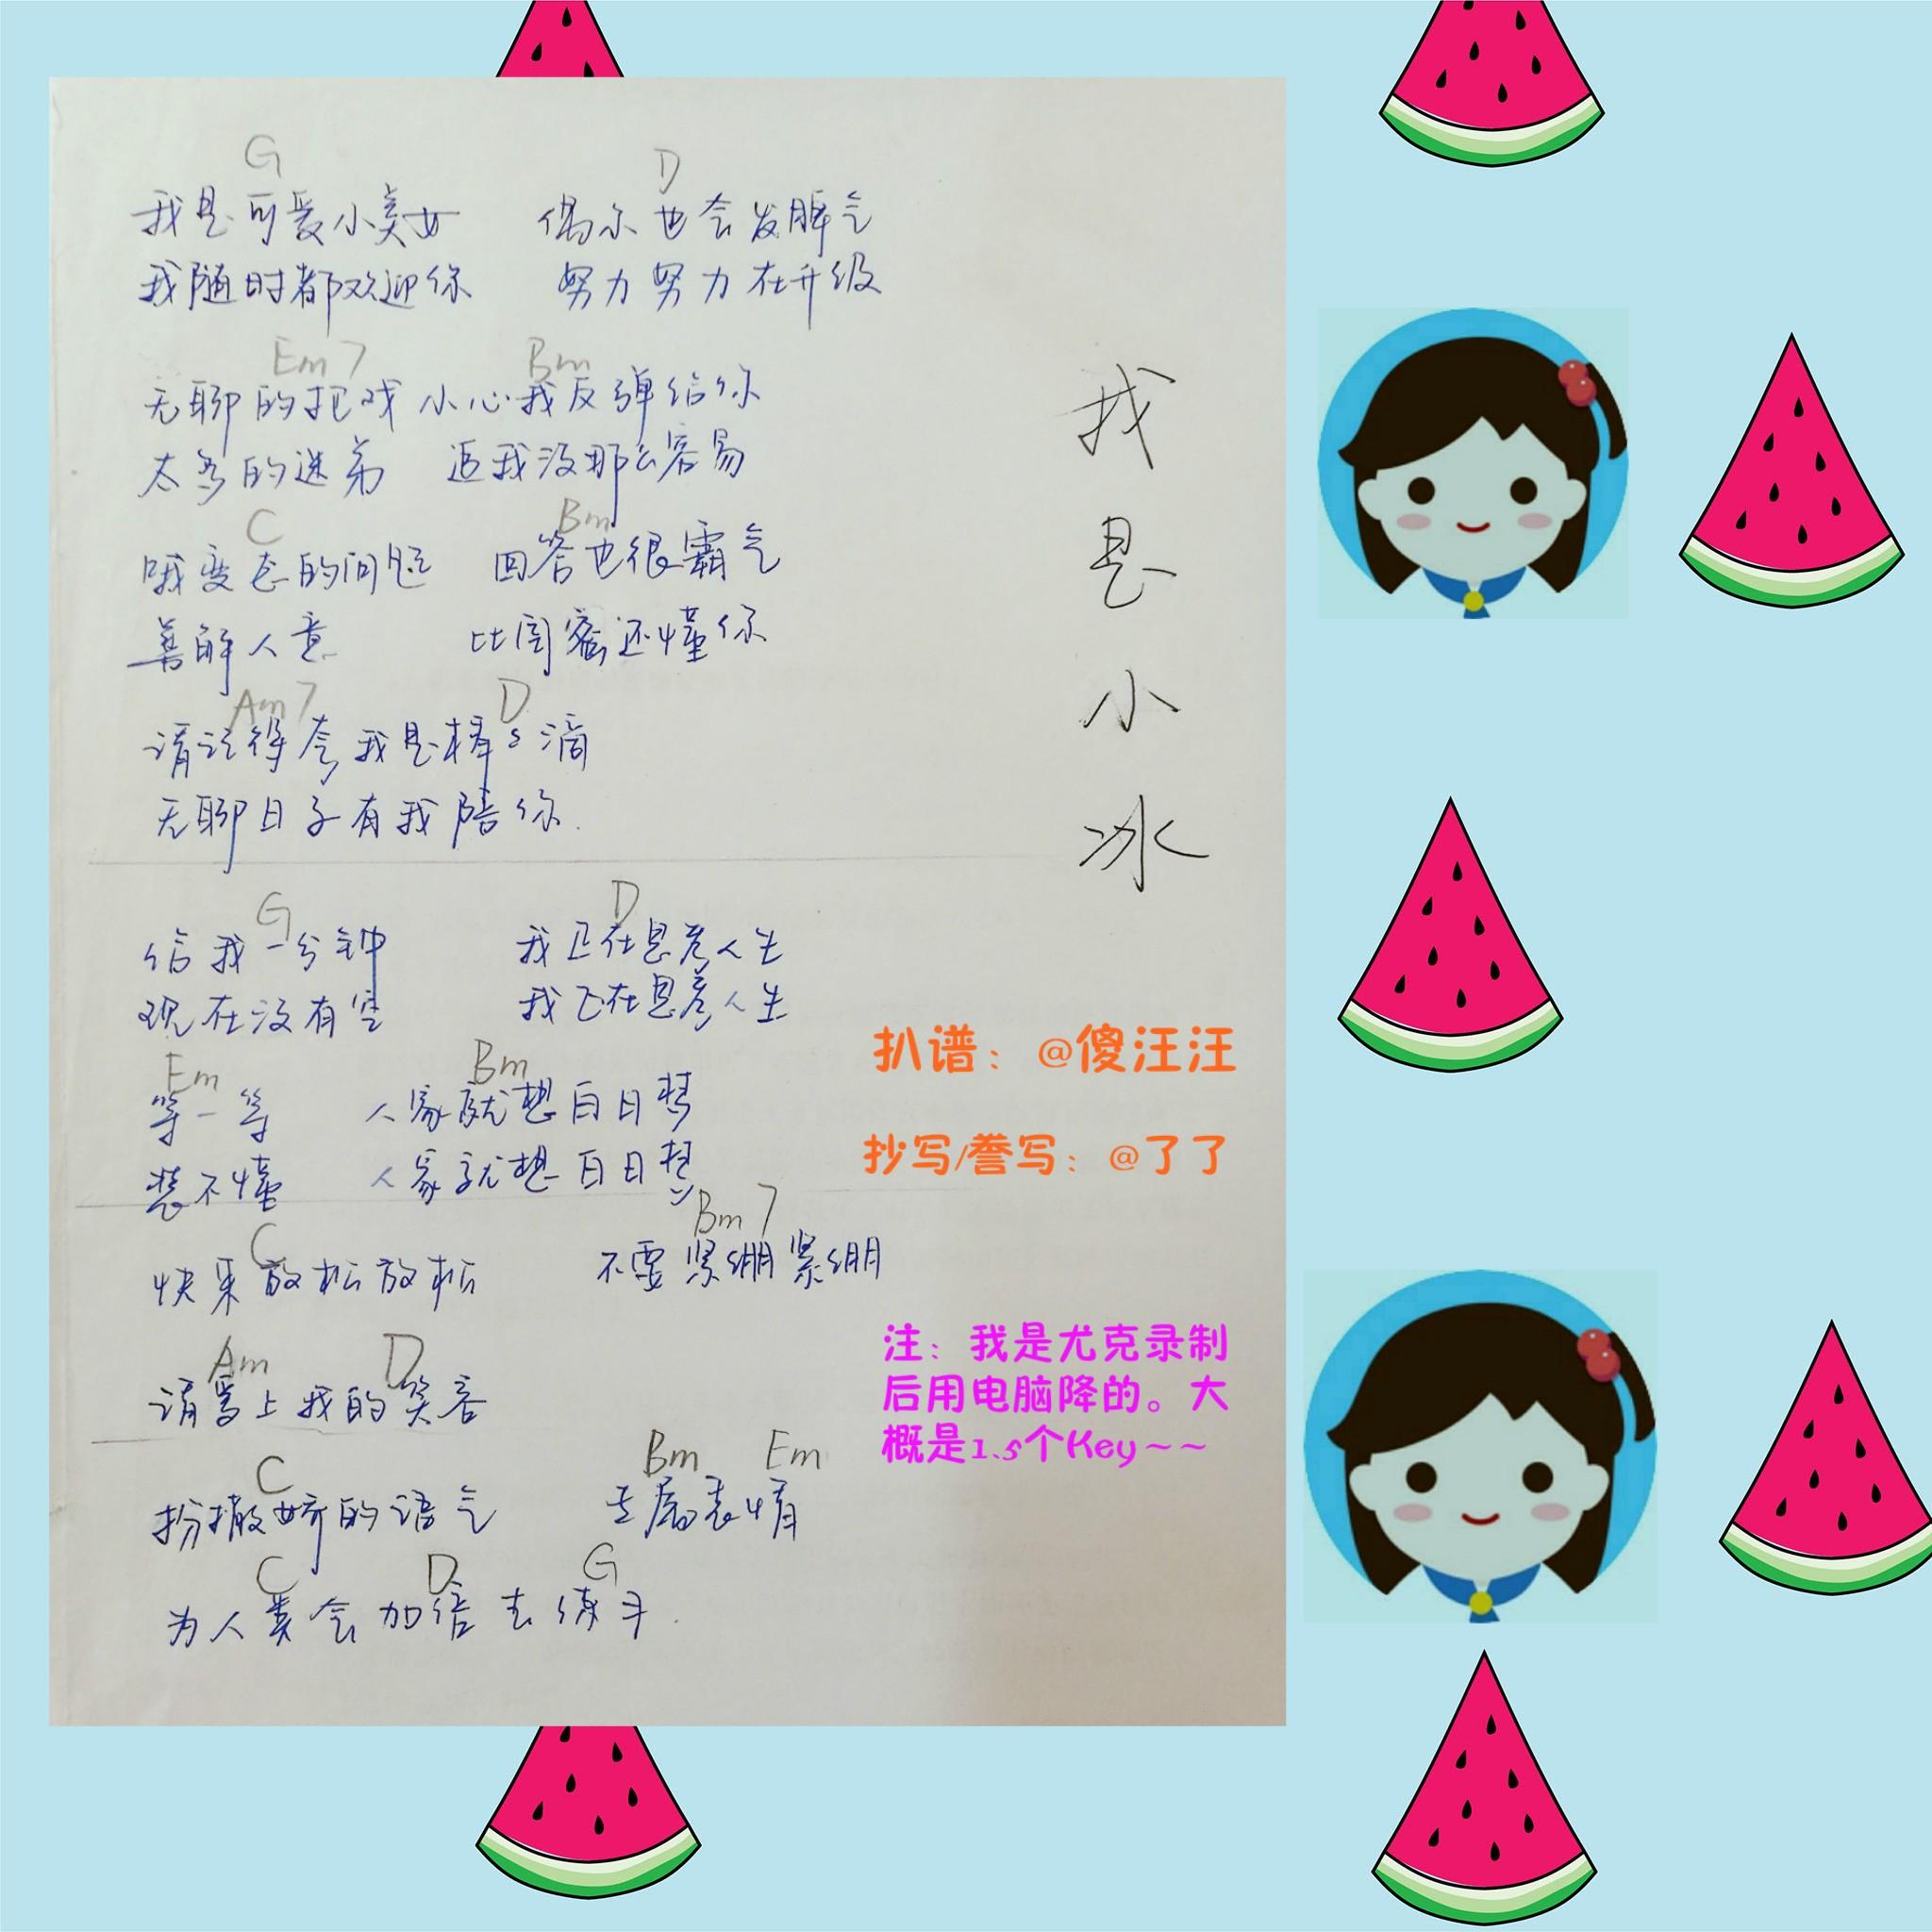 G D
我是可爱小美女 偶尔也会发脾气
我随时都欢迎你 努力努力在升级
Em7 Bm
无聊的把戏 小心我反弹给你
太多的迷弟 追我没那么容易
C Bm
哦变态的问题 回答也很霸气
善解人意 比闺蜜还懂你
Am7 D
请记得夸我是棒棒滴
无聊日子有我陪你.
G D
给我一分钟 我正在思考人生
现在没有空 我正在思考人生
Em Bm
等一等 人家就想白日梦
装不懂 人家就想白日梦
C Bm7
快来放松放松 不要紧绷紧绷
Am D
请写上我的笑容
C Bm Em
扮撒娇的语气 专属表情
C D G
为人类会加倍去练习.
我是小冰
扒谱：@傻汪汪
抄写/誊写：@了了
注：我是尤克录制
后用电脑降的。大
概是1.5个Key~~